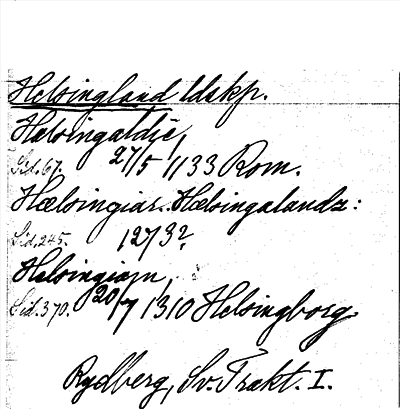 Helsingland ldskp.
Hælsingaldie,
Sid. 67. 27/5 1133 Rom.
Hælsingiar. Hælsingalandz:
Sid. 245. 1273?
Helsingiam,
Sid. 370. 20/7 1310 Helsingborg.
Rydberg, Sv. Trakt. I.